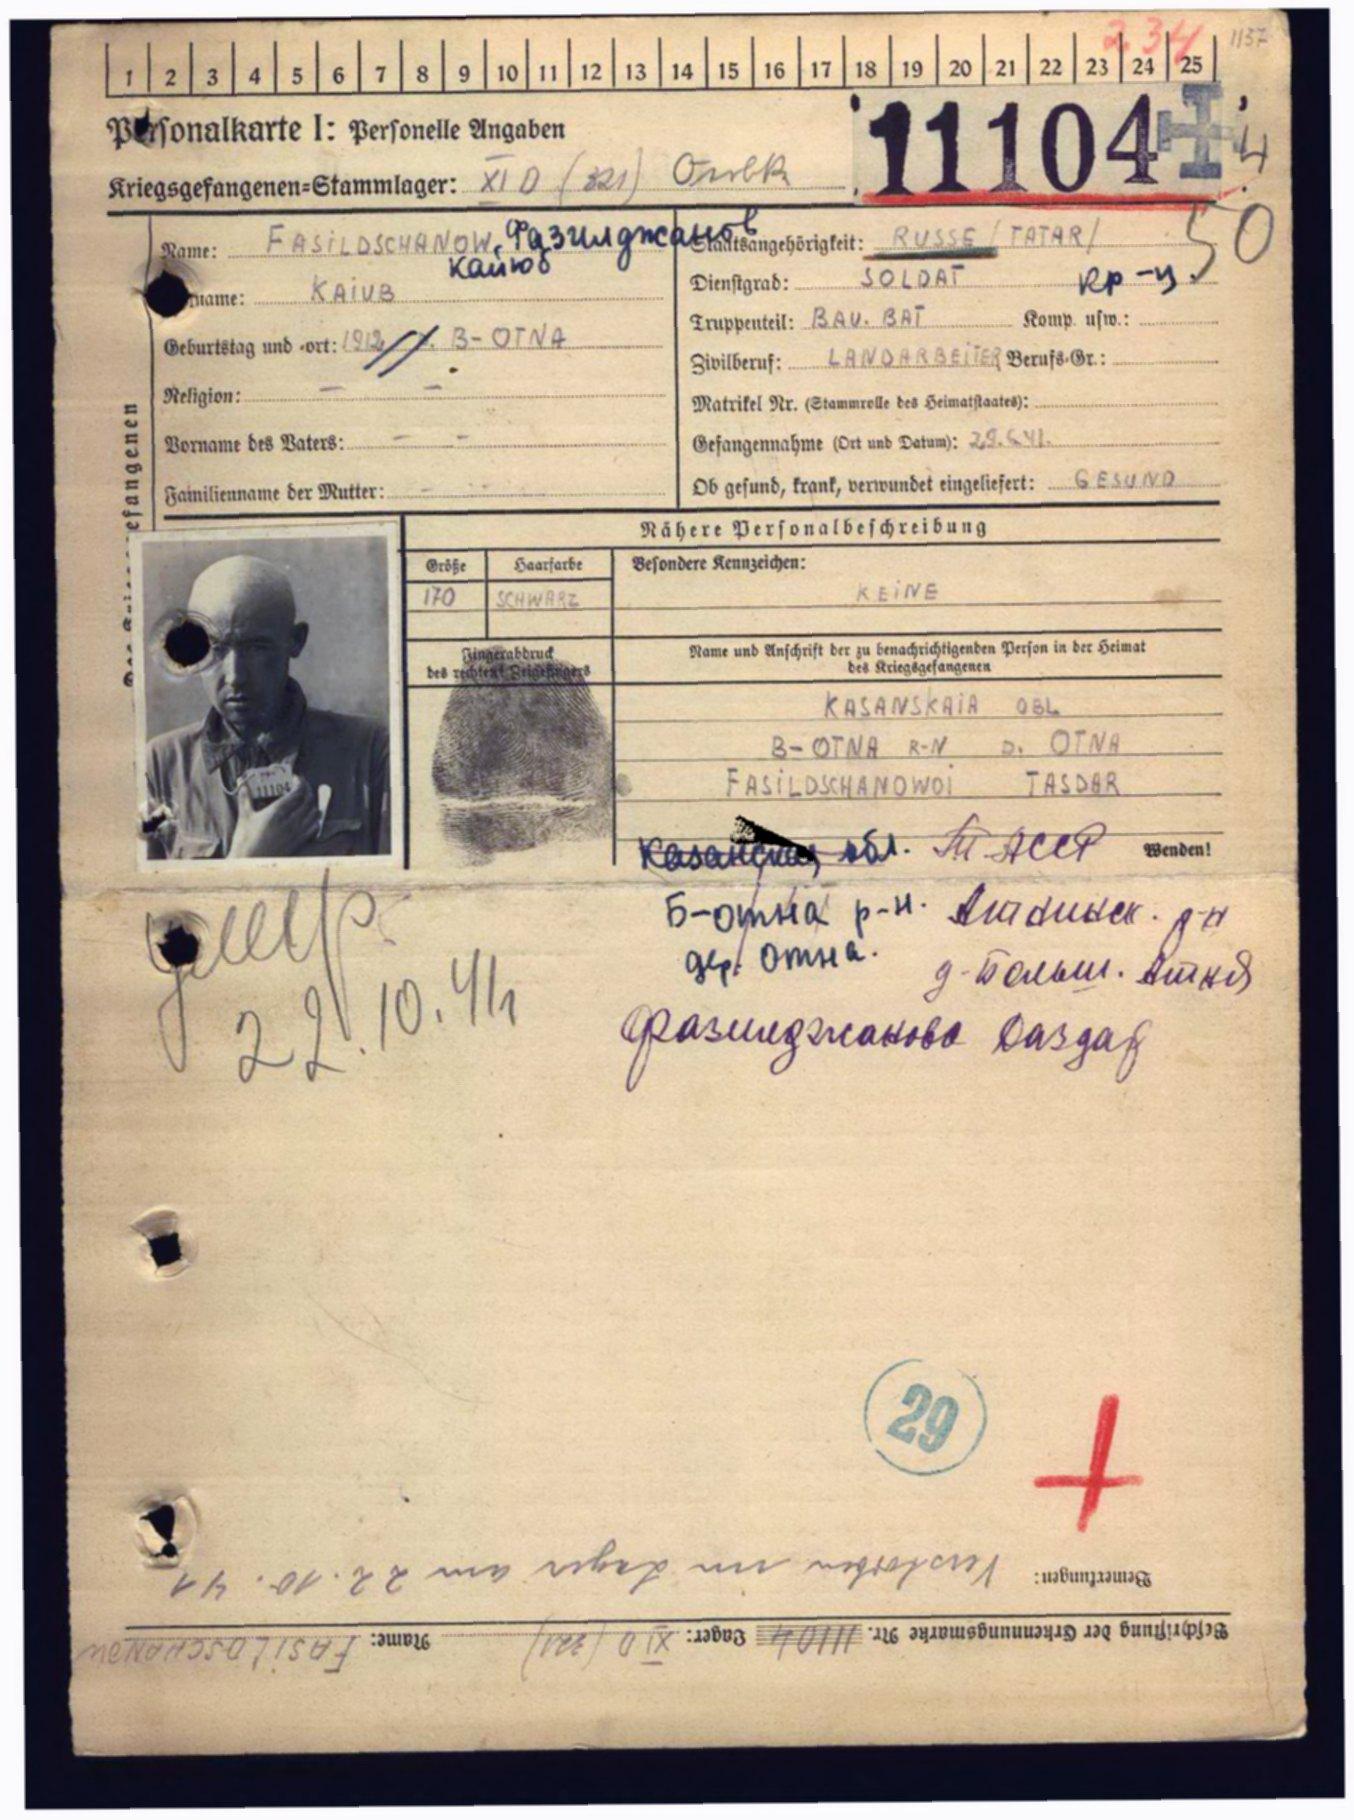 234 1137
1 2 3 4 5 6 7 8 9 10 11 12 13 14 15 16 17 18 19 20 21 22 23 24 25
Personalkarte I: Personelle Angaben
11104
4
Kriegsgefangenen-Stammlager: XI D (321)
50
Name: FASILDSCHANOW, Фазилджанов
Каюб
Vorname: KAIUB
Geburtstag und -ort: 1912 B-OTNA
Religion: – –
Vorname des Vaters: – –
Familienname der Mutter: –
Staatsangehörigkeit: RUSSE / TATAR /
Dienstgrad: SOLDAT кр-ц
Truppenteil: BAU. BAT Komp. usw.:
Zivilberuf: LANDARBEITER Berufs-Gr.:
Matrikel Nr. (Stammrolle des Heimatstaates):
Gefangennahme (Ort und Datum): 29.6.41.
Ob gesund, krank, verwundet eingeliefert: GESUND
Nähere Personalbeschreibung
Größe Haarfarbe Besondere Kennzeichen:
170 SCHWARZ KEINE
11104
Fingerabdruck
des rechten Zeigefingers
Name und Anschrift der zu benachrichtigenden Person in der Heimat
des Kriegsgefangenen
KASANSKAIA OBL
B-OTNA R-N D. OTNA
FASILDSCHANOWOI TASDAR
Казанская обл. Т АССР Wenden!
Б-отна р-н. Атнинск. р-н
дер. Отна. д-Больш. Атня
Фазилджанова
умер
22.10.41
29
Bemerkungen: Verstorben im Lager am 22.10.41
Beschriftung der Erkennungsmarke Nr. 11104 Lager: XI D (321) Name: FASILDSCHANOW